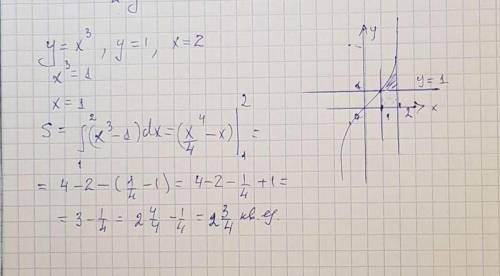 y = x³, y = 1, x = 2
x³ = 1
x = 1
S = ∫₁² (x³ - 1) dx = (x⁴/4 - x) |₁² =
= 4 - 2 - (1/4 - 1) = 4 - 2 - 1/4 + 1 =
= 3 - 1/4 = 2 4/4 - 1/4 = 2 3/4 кв. ед.
y
y = 1
1
0
1 2 x